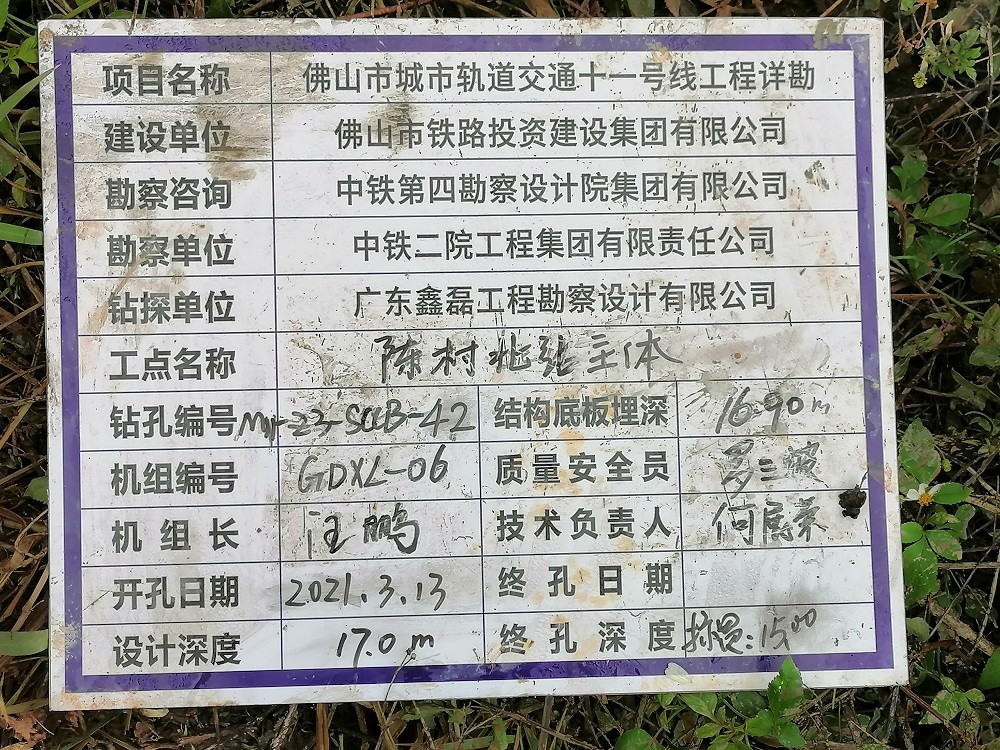 项目名称 佛山市城市轨道交通十一号线工程详勘
建设单位 佛山市铁路投资建设集团有限公司
勘察咨询 中铁第四勘察设计院集团有限公司
勘察单位 中铁二院工程集团有限责任公司
钻探单位 广东鑫磊工程勘察设计有限公司
工点名称 陈村北站主体
钻孔编号 -Z3-SCCB-42 结构底板埋深 16.90m
机组编号 GDXL-06 质量安全员
机组长 汪鹏 技术负责人 何展荣
开孔日期 2021.3.13 终孔日期
设计深度 17.0m 终孔深度 :15.00